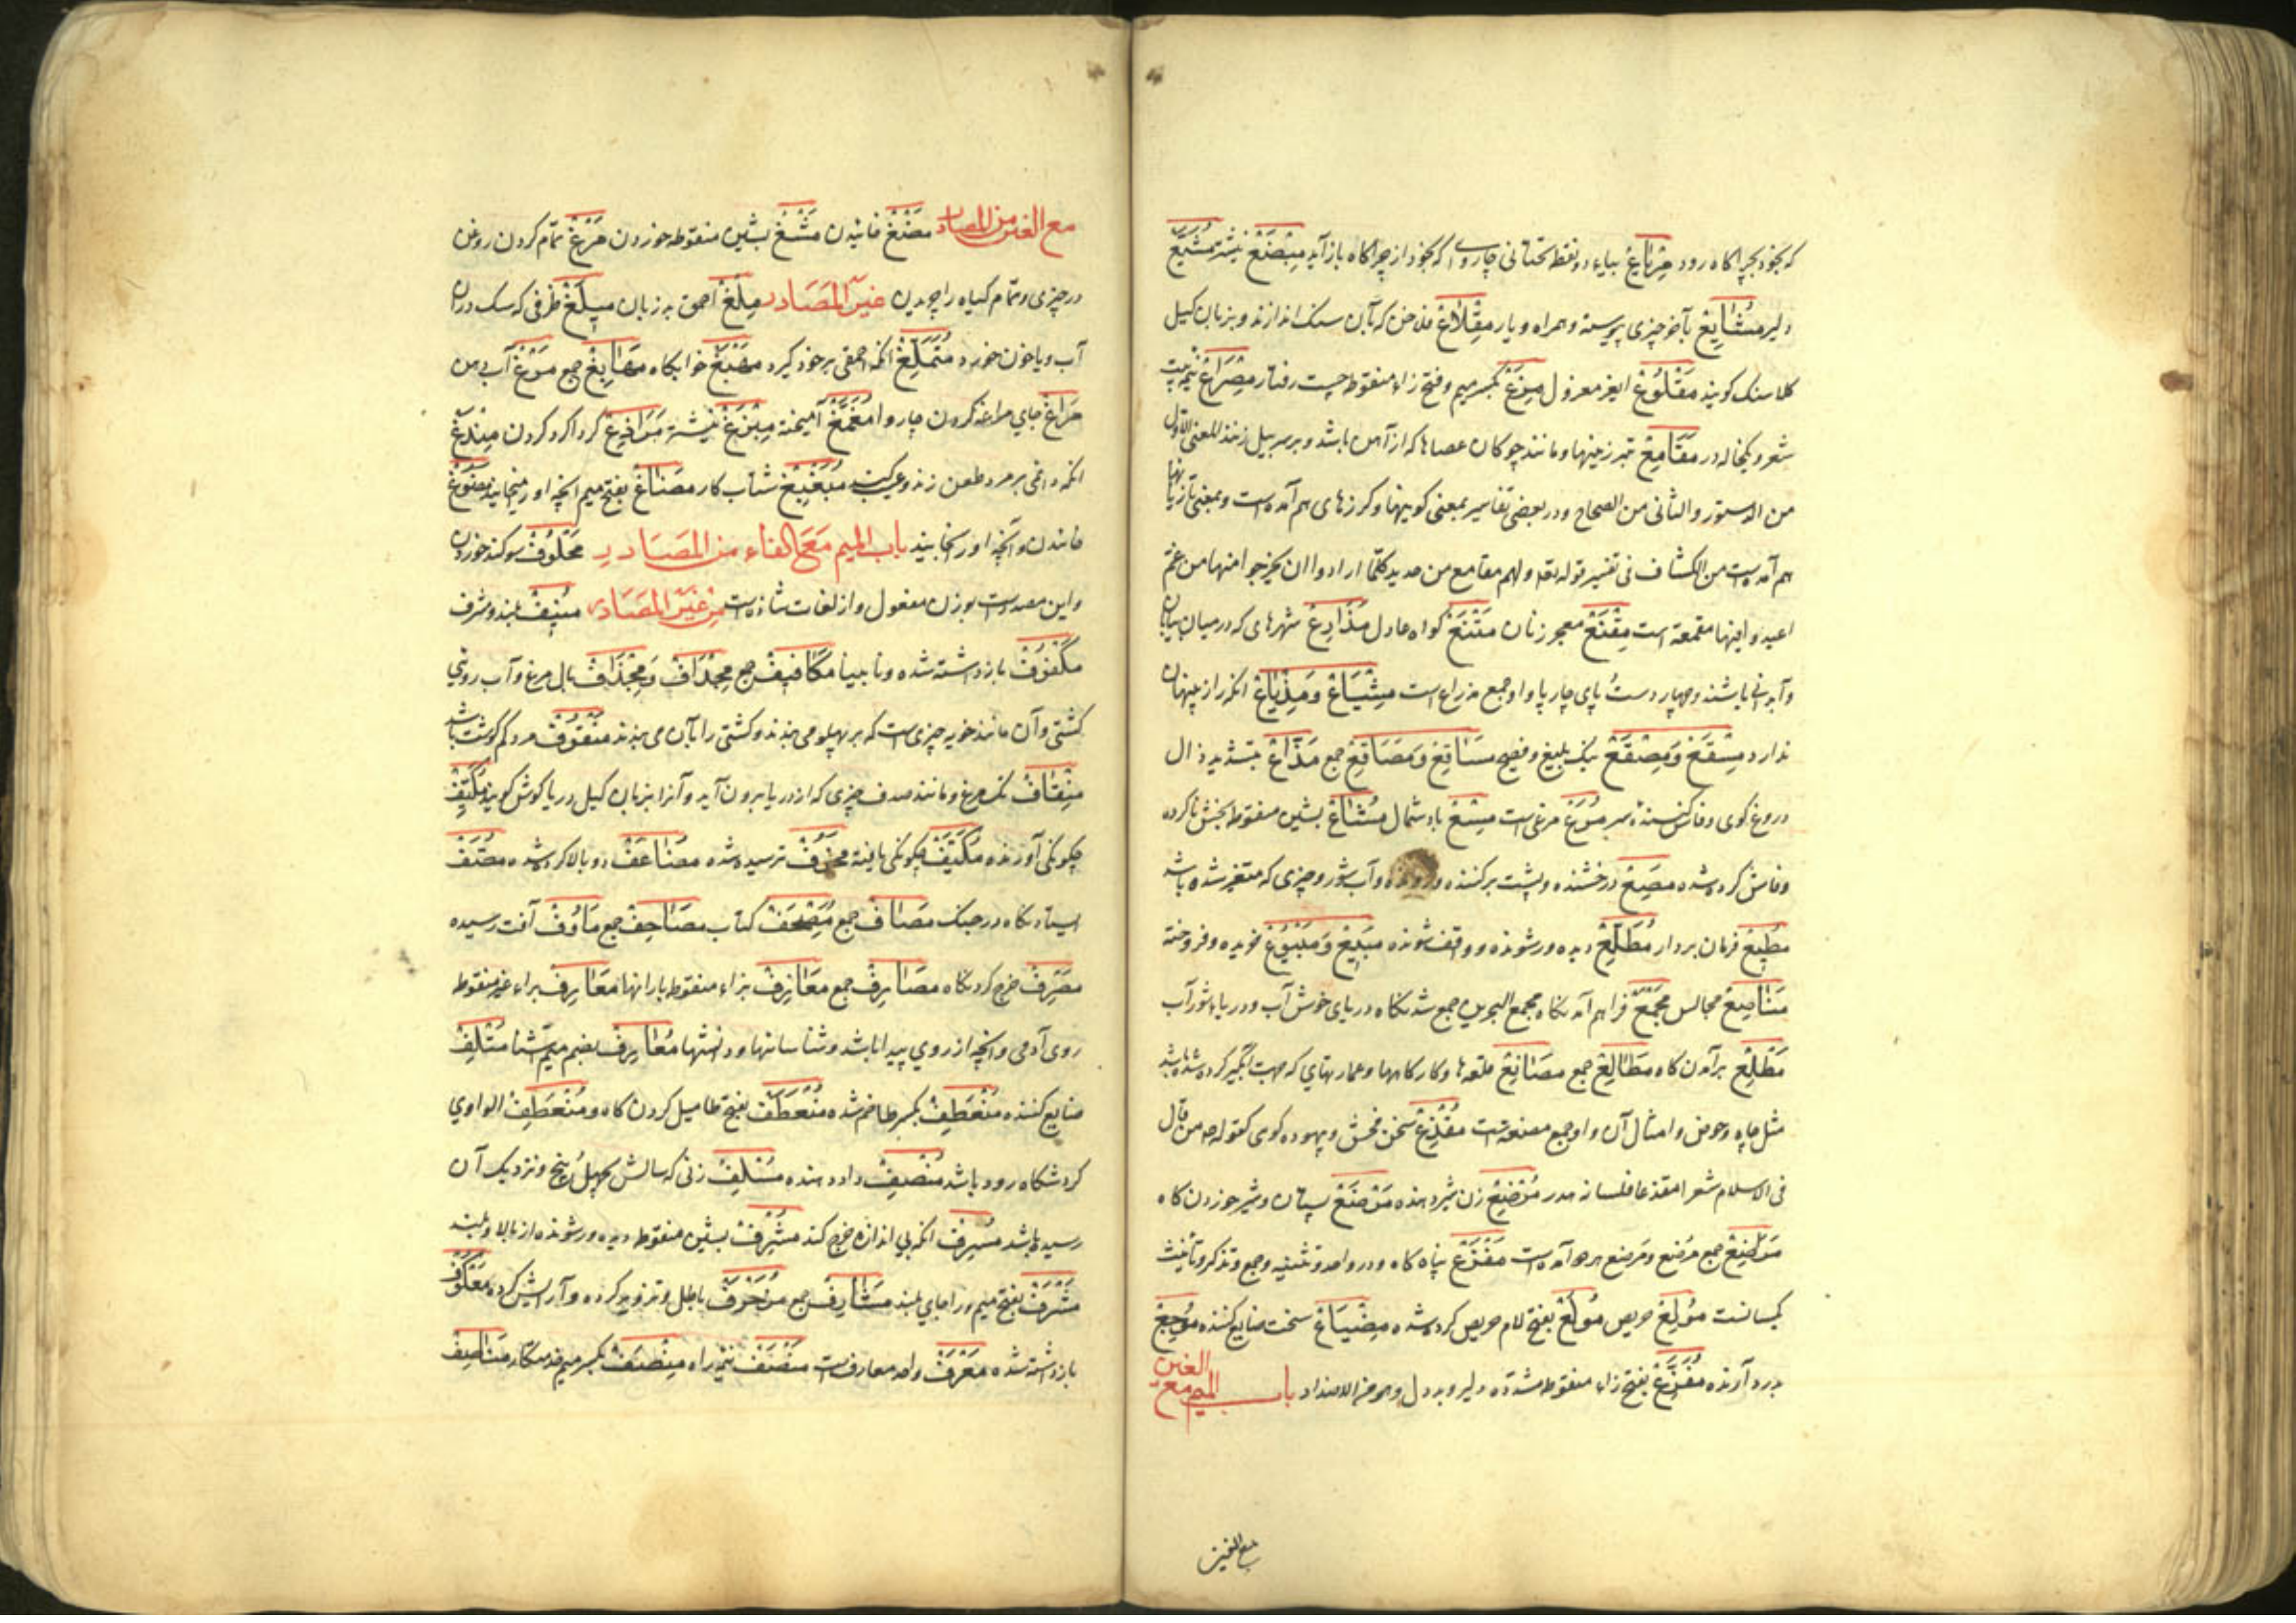 که بخود بچراکاه رود مِرْیَاعْ بیاء دو نقطه تحتانی چاروای که بخود از چراکاه باز آید مِبْضَعْ نیشتر مُشَیَّعْ
دلیر مُشَایِعْ بآخر چیزی پیوسته و همراه و یار مِقْلَاعْ فلاخن که بآن سنک اندازند و بزبان کیل
کلاسنک کویند مَقْلُوعْ ایغر معزول مِزَعْ بکسر میم و فتح زاء منقوط چست رفتار مِصْرَاعْ نیم بیت
شعر و یکتاله در مَقَامِعْ تبرزینها و مانند چوکان عصاها که از آهن باشد و بر سر پیل زنند المعنی الاول
من الدستور و الثانی من الصحاح و در بعضی تفاسیر بمعنی کوپینها و کرزهای هم آمده است و بمعنی تازیانها
هم آمده است من الکشاف فی تفسیر قوله تعه ولهم مقامع من حدید کلما ارادوا ان یخرجوا منها من غم
اعیدوا فیها مقمعة است مِقْنَعْ معجر زنان مَقْنَعْ کواه عادل مَذَارِعْ شهرهای که در میان بیابان
و آبدانی باشند و چهار دست پای چارپا و او جمع مذراع است مِشْیَاعْ وَ مِذْیَاعْ انکه راز پنهان
ندارد مِسْقَعْ وَ مِصْقَعْ نیک بلیغ و فصیح مَسَاقِعْ وَ مَصَاقِعْ جمع مَذَّاعْ بتشدید ذال
دروغ کوی و فاش کننده سر مُرَعْ مرغی است مِسْعْ باد شمال مُشَاعْ بشین منقوط بخش ناکرده
و فاش کرده شده مصِعْ درخشنده و پشت برکننده و رونده و آب شور و چیزی که متغیر شده باشد
مُطِیعْ فرمان بردار مُطَّلِعْ دیده ور شونده و واقف شونده مَبِیعْ وَ مَبْیُوعْ خریده و فروخته
مَنَاصِعْ مجالس مَجْمَعْ فراهم آمد نکاه مجمع البحرین جمع شد نکاه دریای خوش آب و دریاء شور آب
مَطْلِعْ برآمدن کاه مَطَالِعْ جمع مَصَانِعْ قلعه ها و کارکاهها و عمارتهای که جهت آبگیر کرده شده باشد
مثل چاه و حوض و امثال آن و او جمع مصنعه است مُقْذِعْ سخن فحش و بیهوده کوی کقوله عم من قال
فی الاسلام شعرا مقذعا فلسانه هدر مُرْضِعْ زن شیر دهنده مَرْضَعْ پستان و شیر خوردن کاه
مَرَاضِعْ جمع مرضع و مرضع هر دو آمده است مَفْزَعْ پناه کاه و در واحد و تثنیه و جمع و تذکیر و تأنیث
یکسانست مُولِعْ حریص مُولَعْ بفتح لام حریص کرده شده مِضْیَاعْ سخت ضایع کننده مُوجِعْ
بدرد آورنده مُفَزَّعْ بفتح زاء منقوط مشدده دلیر و بددل و هو من الاضداد باب المیم مع الغین
مع الغین
مع الغین من المصادر مَضْغْ خائیدن مَشْغْ بشین منقوط خوردن مَرْغْ تمام کردن روغن
در چیزی و تمام کیاه را چریدن غیر المَصَادر مِلْغْ احمق بد زبان مِیلَغْ ظرفی که سک در آن
آب و یا خون خورد مُتَمَلِّغْ انکه احمقی بر خود کیرد مَضْبَغْ خوابکاه مَضَابِغْ جمع مَرْغْ آب دهن
مَرَاغْ جای مراغه کردن چاروا مُغْمَغْ آمیخته مِبْزَغْ نیشتر مَرَاوِغْ کرداکرد کردن مِنْدَغْ
انکه داغی بر مرد طعن زند و عیب کند مُبَغْبِغْ شتاب کار مَضَاغْ بفتح میم انچه او را بخایند مَمْضُوغْ
خائیدن و آنچه او را بخایند باب المیم مَعَ الفاء من المَصَادر مَحْلُوفْ سوکند خوردن
و این مصدر است بوزن مفعول و از لغات شاذ است من غَیْر المَصَادر مُنِیفْ بلند و مشرف
مَکْفُوفْ باز داشته شده و نابینا مَکَافِیفْ جمع مِجْدَافْ وَ مِجْذَافْ بال مرغ و آب روبی
کشتی و آن مانند خوپه چیزی است که بر پهلو می بندند و کشتی را بآن می برند مَنْقُوفْ مرد کم کوشت باشد
مِنْقَافْ نک مرغ و مانند صدف چیزی که از دریا برون آید و آنرا بزبان کیل دریا کوش کویند مُکَیِّفْ
چکونکی آورنده مُکَیَّفْ چکونکی یافته مَخُوفْ ترسیده شده مُضَاعَفْ دو بالا کرده شده مَصَفْ
ایستادنکاه در جنک مَصَافْ جمع مُصْحَفْ کتاب مَصَاحِفْ جمع مَاوُفْ آفت رسیده
مَصْرِفْ خرج کردنکاه مَصَارِفْ جمع مَعَازِفْ بزاء منقوط بارانها مَعَارِفْ براء غیر منقوط
روی آدمی و آنچه از روی پیدا باشد و شناسانها و دانشها مُعَارِفْ بضم میم آشنا مُتْلِفْ
ضایع کننده مُنْعَطِفْ بکسر طا خم شده مُنْعَطَفْ بفتح طا میل کردن کاه و مُنْعَطِفْ الوادی
کردشکاه رود باشد مُنْصِفْ داد دهنده مُسْلِفْ زنی که سالش بچهل و پنج و نزدیک آن
رسیده باشد مُسْرِفْ انکه بی اندازه خرج کند مُشْرِفْ بشین منقوط دیده ور شونده از بالا و بلند
مَشْرَفْ بفتح میم و را جای بلند مَشَارِفْ جمع مُزَخْرَفْ باطل و تزویر کرده و آرایش کرده مَعْکُوفْ
باز داشته شده مَعْرَفْ واحد معارف است مَنْصَفْ نیم راه مِنْصَفْ بکسر میم خدمتکار مَنَاصِفْ